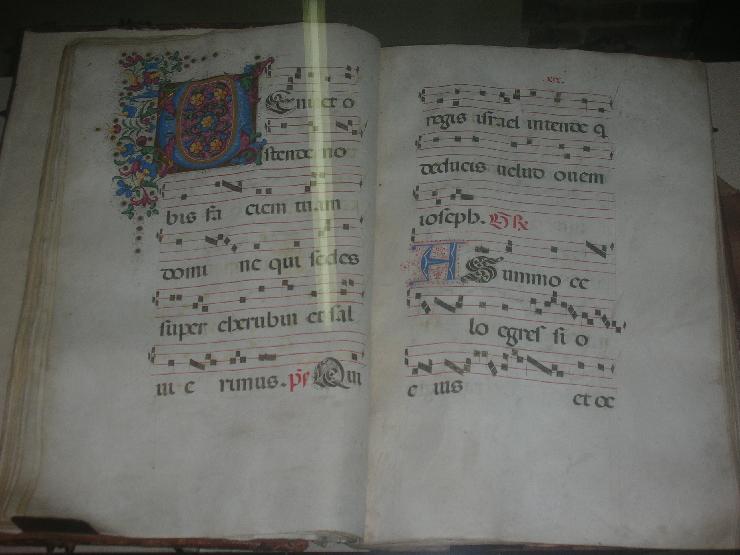 UEni et o
stende no
bis fa ciem tuam
domi ne qui sedes
super cherubin et sal
ui e rimus. ps Qui
xix.
regis israel intende q
deducis uelud ouem
ioseph.
A Summo ce
lo egres si o
e ius et oc